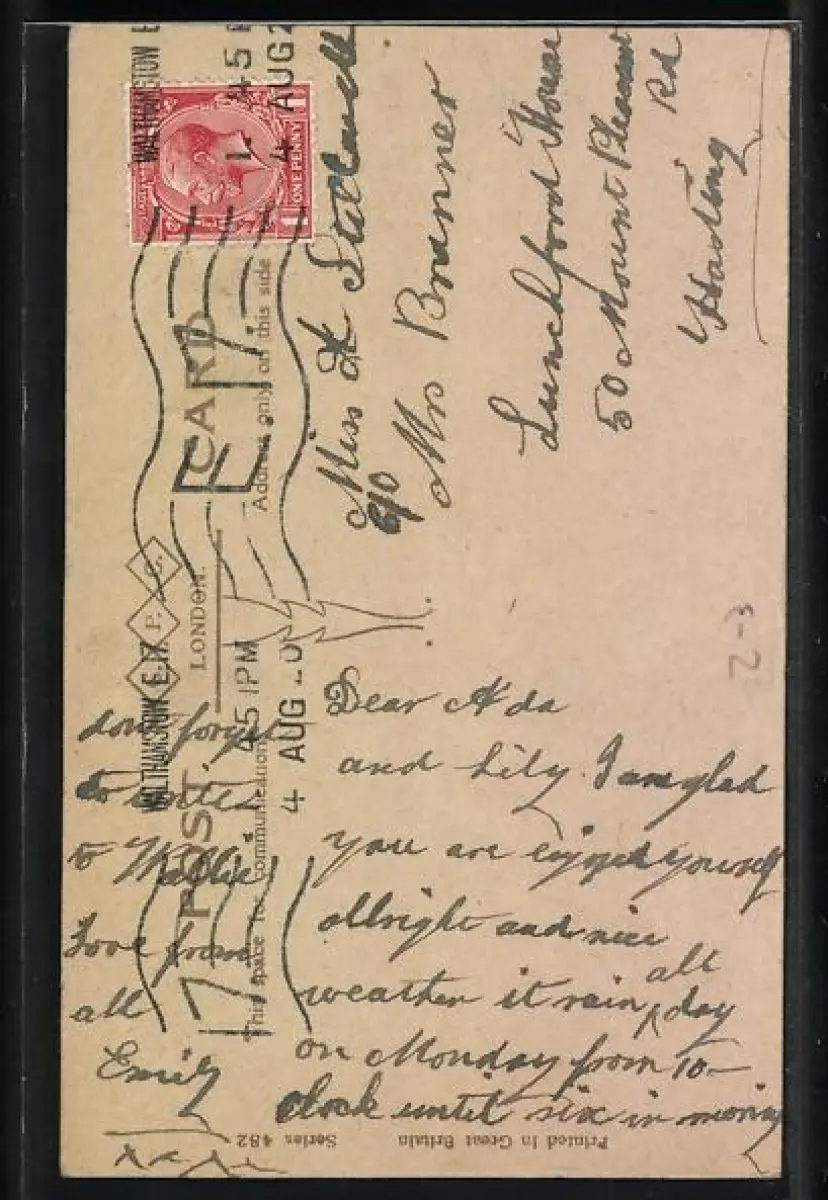 POST CARD
P. C.
LONDON.
This space for communication
Address only on this side
WALTHAMSTOW E.17.
45 1PM
4 AUG
WALTHAMSTOW E
1 45 P
4 AUG 2
ONE PENNY
Miss A
c/o Mrs Brunner
House
50 Mount Pleasant
Rd
Hasting
Dear Ada
and Lily. I am glad
you are yourself
allright and nice
weather it rain all day
on Monday from 10-
clock until six in
dont forget
to write
to
Love from
all
Emily
xxx
Series 482
Printed in Great Britain
2-3